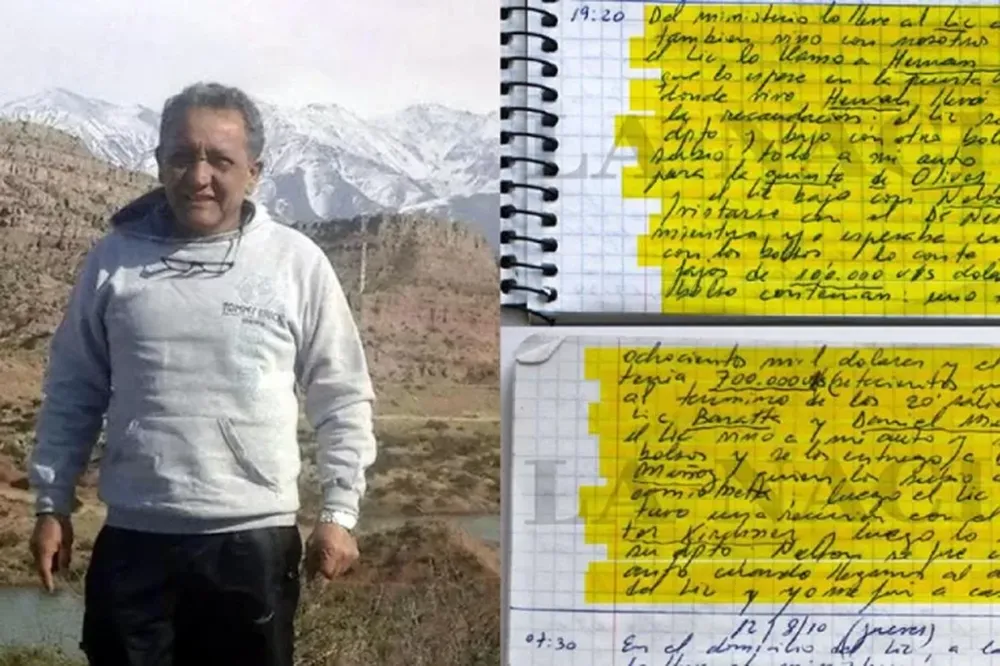 19:20 Del ministerio lo lleve al Lic
tambien vino con nosotros
el Lic lo llamo a Hernan
que lo espere en la puerta
donde vivo Hernan llevó
la recaudacion. el Lic
dpto y bajo con otro bol
subio todo a mi auto
para la quinta de Olivos
el Lic bajo con Nels
con el Dr Ne
mientras yo esperaba en
con los bolsos lo conto
fajos de 100.000 u$s dola
bolso contenian: uno
ochociento mil dolares y el
tenia 700.000 u$s (setecientos
al termino de los 20
Lic Baratta y Daniel
el Lic vino a mi auto y
bolsos y se los entrego a
Muñoz y quien los subio a
camioneta, luego el Lic
tuvo una reunion con el
tor Kirchner, luego lo
su dpto Nelson se fue
auto cuando llegamos al
del Lic y yo me fui a cas
12/8/10 (jueves)
07:30 En el domicilio del Lic a
LA NACI
LA NACI
TOMMY